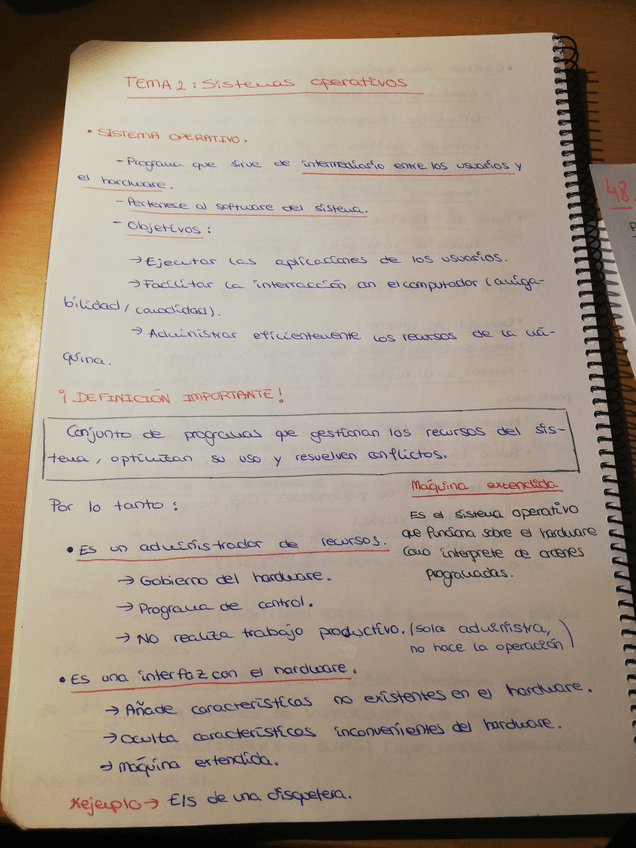 TEMA 2: Sistemas operativos
• SISTEMA OPERATIVO.
- Programa que sirve de intermediario entre los usuarios y
el hardware.
- Pertenece al software del sistema.
- Objetivos:
→ Ejecutar las aplicaciones de los usuarios.
→ Facilitar la interracción con el computador (amiga-
bilidad / comodidad).
→ Administrar eficientemente los recursos de la má-
quina.
¡DEFINICIÓN IMPORTANTE!
Conjunto de programas que gestionan los recursos del sis-
tema, optimizan su uso y resuelven conflictos.
Por lo tanto:
• Es un administrador de recursos.
→ Gobierno del hardware.
→ Programa de control.
→ No realiza trabajo productivo. (sola administra,
no hace la operación)
Máquina extendida
Es el sistema operativo
que funciona sobre el hardware
como interprete de ordenes
programadas.
• Es una interfaz con el hardware.
→ Añade características no existentes en el hardware.
→ Oculta características inconvenientes del hardware.
→ Máquina extendida.
✗ejemplo → E/s de una disquetera.
48.
P